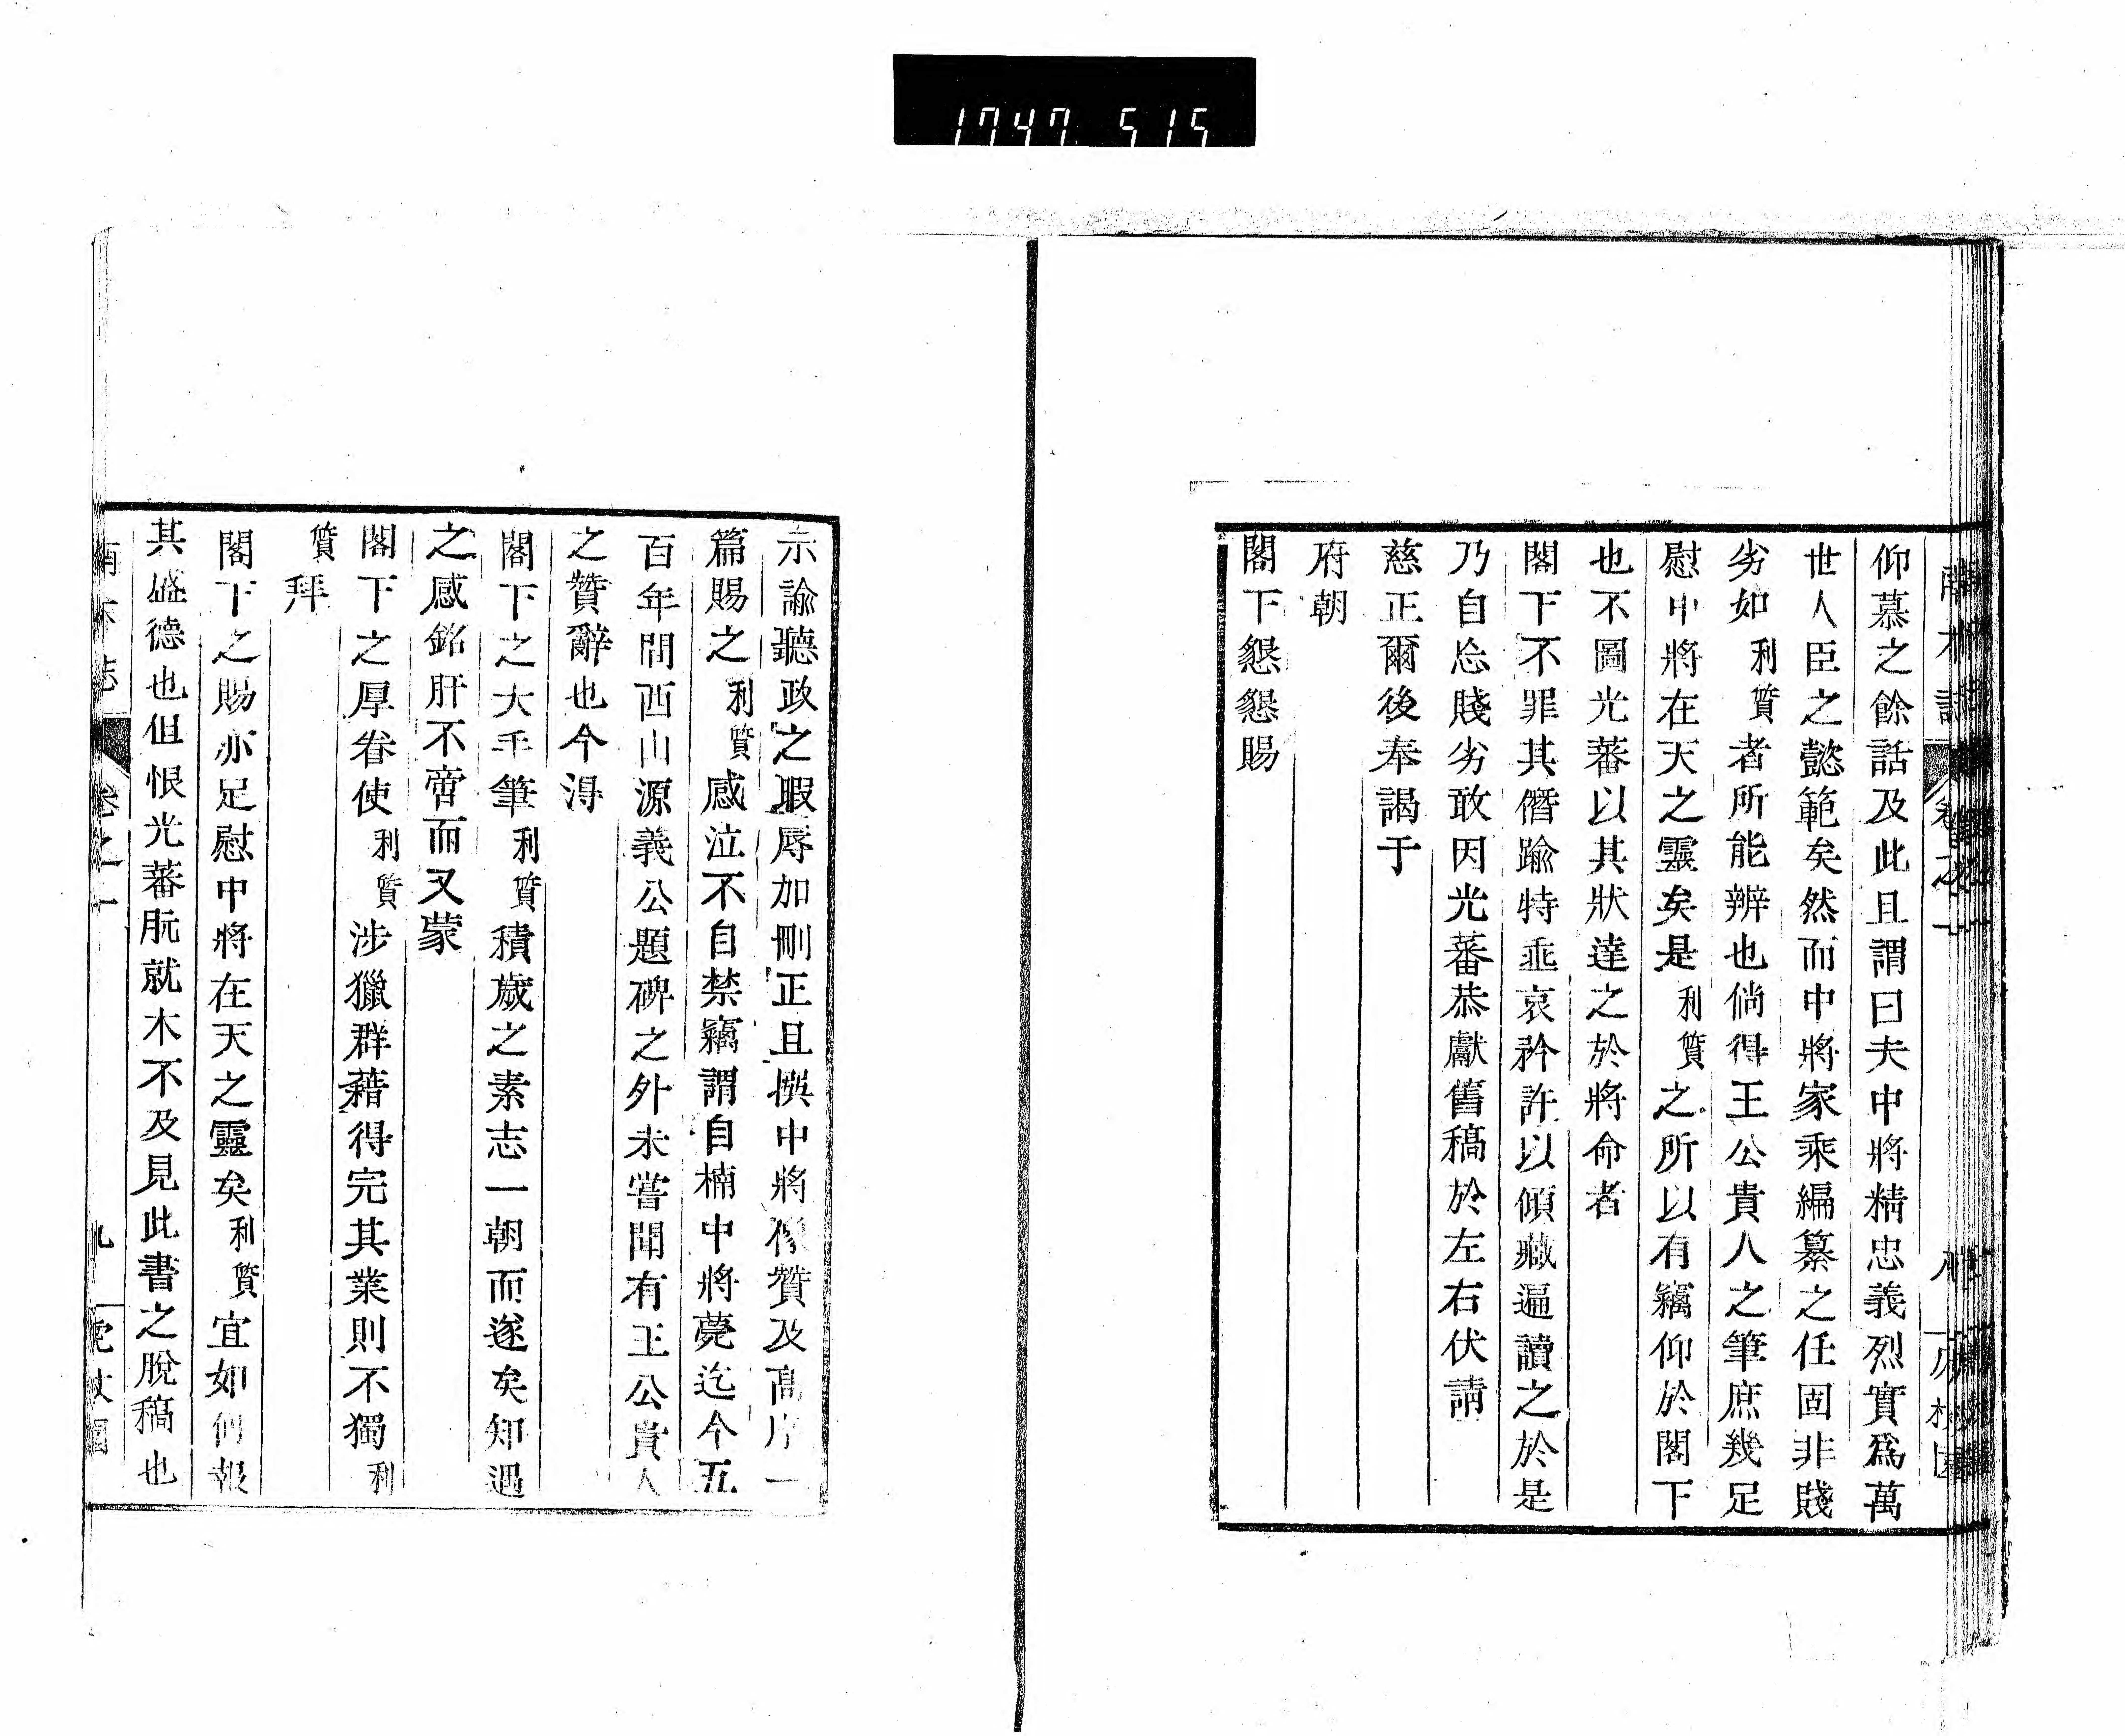 1747 515
仰慕之餘話及此且謂曰夫中將精忠義烈實爲萬
世人臣之懿範矣然而中將家乘編纂之任固非賤
劣如利質者所能辨也倘得王公貴人之筆庶幾足
慰中將在天之靈矣是利質之所以有竊仰於閣下
也不圖光蕃以其狀達之於將命者
閣下不罪其僭踰特垂哀矜許以傾藏逼讀之於是
乃自忘賤劣敢因光蕃恭獻舊稿於左右伏請
慈正爾後奉謁于
府朝
閣下懇懇賜
示諭聽政之暇辱加刪正且撰中將像贊及高序一
篇賜之利質感泣不自禁竊謂自楠中將薨迄今五
百年間西山源義公題碑之外未嘗聞有王公貴人
之贊辭也今得
閣下之大手筆利質積歲之素志一朝而遂矣知遇
之感銘肝不啻而又蒙
閣下之厚眷使利質涉獵群藉得完其業則不獨利
質拜
閣下之賜亦足慰中將在天之靈矣利質宜如何報
其盛德也但恨光蕃阮就木不及見此書之脫稿也
南木誌 卷之一 九